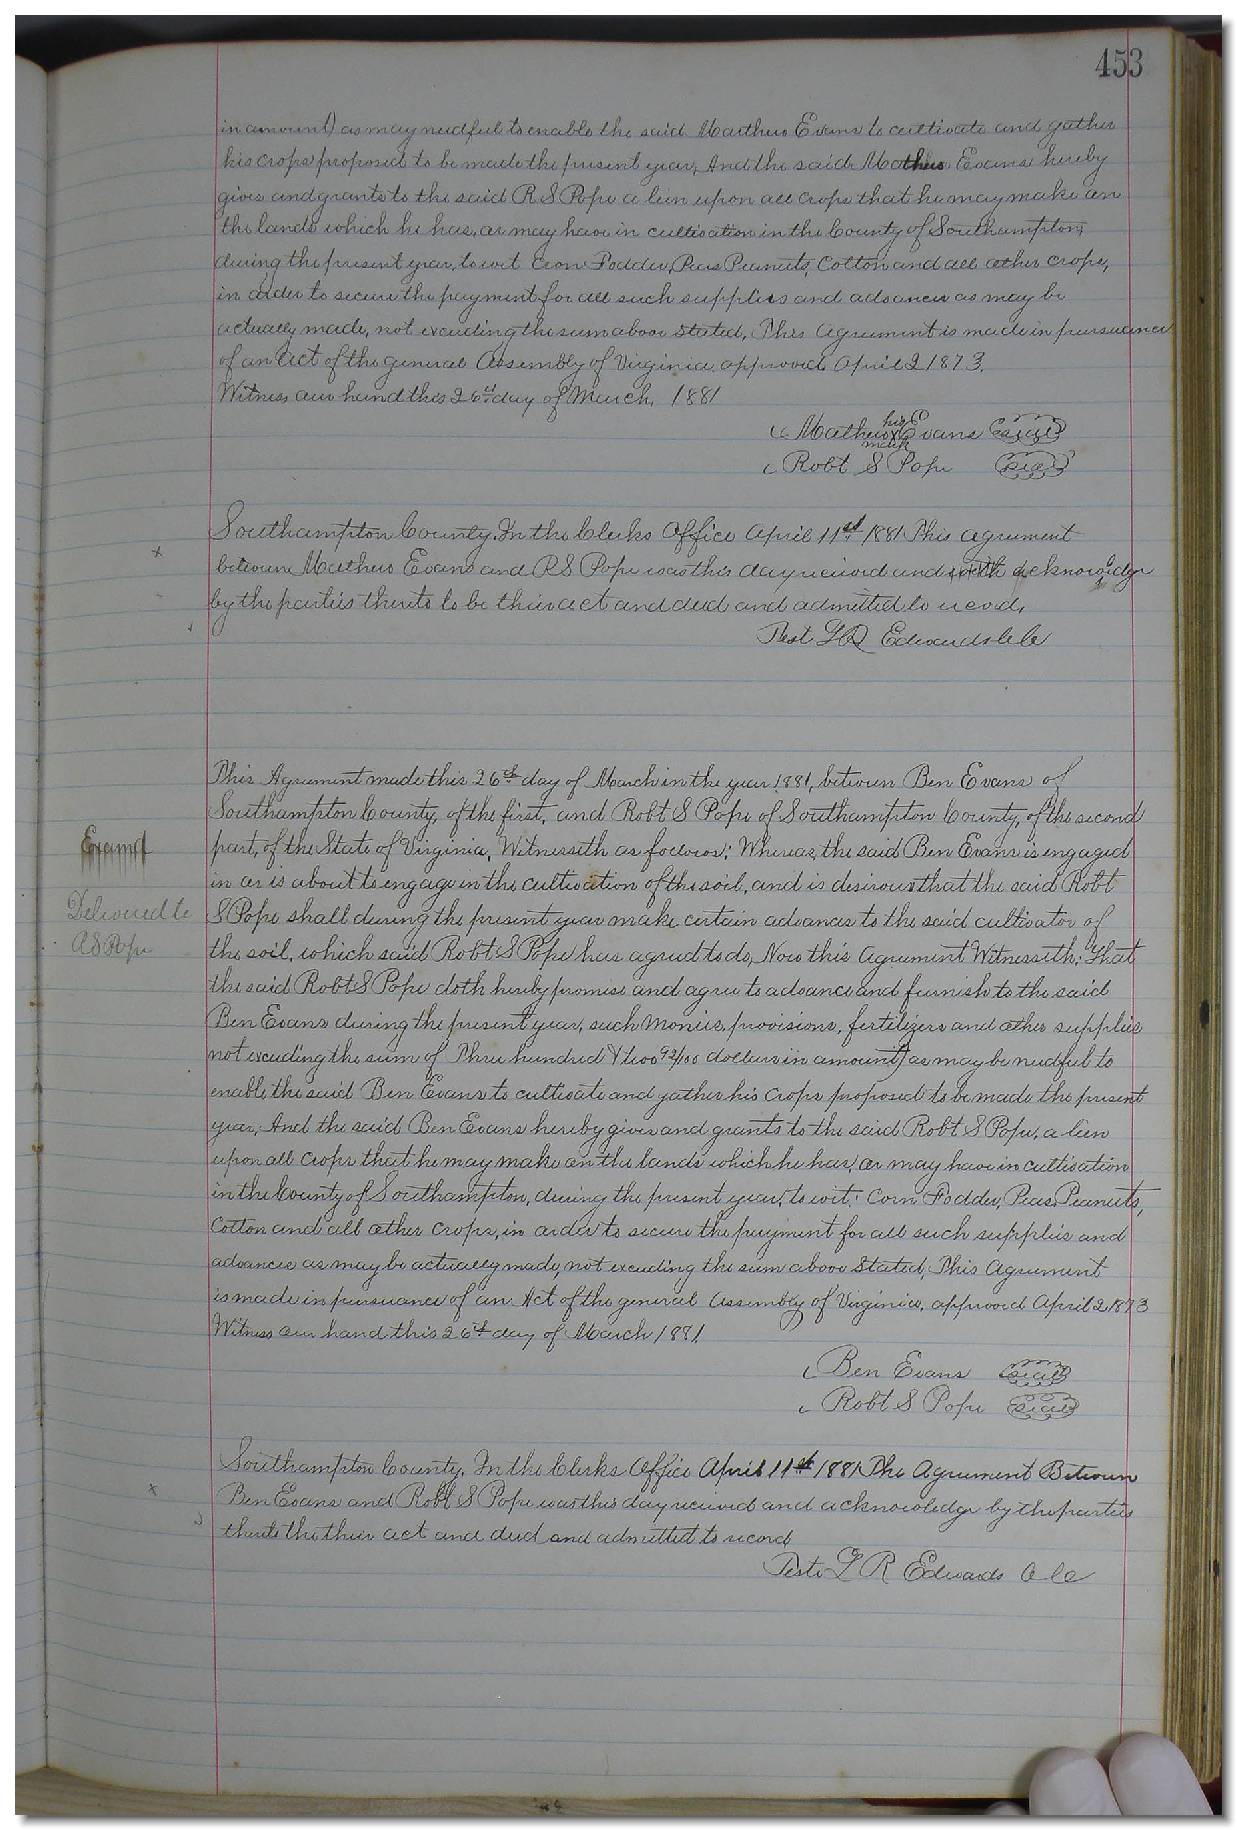 453
in amount) as may needful to enable the said Mathew Evans to cultivate and gather
his crops proposed to be made the present year, And the said Mathew Evans hereby
gives and grants to the said R S Pope a lien upon all crops that he may make on
the lands which he has, or may have in cultivation in the County of Southampton,
during the present year, to wit Corn Fodder, Peas Peanuts, Cotton and all other crops,
in order to secure the payment for all such supplies and advances as may be
actually made, not exceeding the sum above stated, This Agreement is made in pursuance
of an Act of the general Assembly of Virginia, approved April 2 1873.
Witness our hand this 26th day of March, 1881
Mathew his X mark Evans seal
Robt S Pope seal
Southampton County. In the Clerks Office April 11th 1881 This agreement
between Mathew Evans and R S Pope was this day received and acknowledge
by the parties thereto to be their act and deed and admitted to record,
Test L R Edwards Clc
This Agreement made this 26th day of March in the year 1881, between Ben Evans of
Southampton County, of the first, and Robt S Pope of Southampton County, of the second
part, of the State of Virginia, Witnesseth as follows: Whereas, the said Ben Evans is engaged
in or is about to engage in the cultivation of the soil, and is desirous that the said Robt
S Pope shall during the present year make certain advances to the said cultivator of
the soil, which said Robt S Pope has agreed to do, Now this Agreement Witnesseth: That
the said Robt S Pope doth hereby promise and agree to advance and furnish to the said
Ben Evans during the present year, such monies, provisions, fertilizers and other supplies
not exceeding the sum of Three hundred & two 93/100 dollars in amount) as may be needful to
enable the said Ben Evans to cultivate and gather his crops proposed to be made the present
year, And the said Ben Evans hereby gives and grants to the said Robt S Pope, a lien
upon all crops that he may make on the lands which he has, or may have in cultivation
in the County of Southampton, during the present year, to wit: Corn Fodder, Peas, Peanuts,
Cotton and all other crops, in order to secure the payment for all such supplies and
advances as may be actually made, not exceeding the sum above Stated, This Agreement
is made in pursuance of an Act of the general Assembly of Virginia, approved April 2 1873
Witness our hand this 26th day of March 1881.
Ben Evans seal
Robt S Pope seal
Examd
Delivered to
R S Pope
Southampton County, In the Clerks Office April 11th 1881 The Agreement Between
Ben Evans and Robt S Pope was this day received and acknowledge by the parties
thereto the their act and deed and admitted to record
Teste L R Edwards Clc